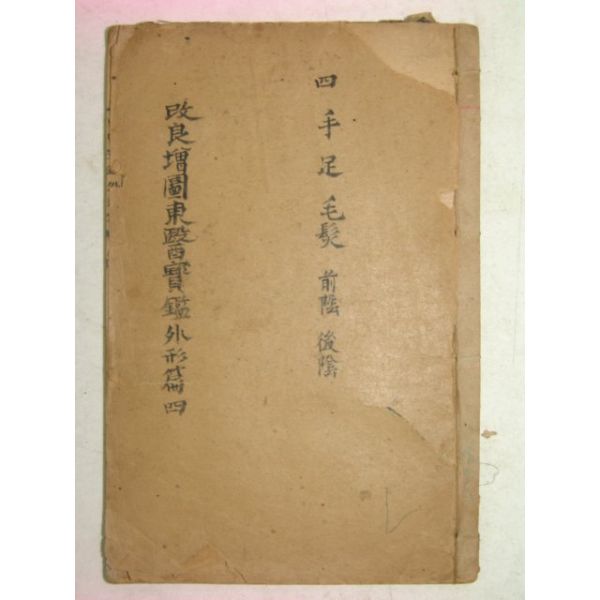 四 手 足 毛髮 前陰 後陰
改良增圖東醫寶鑑 外形篇 四